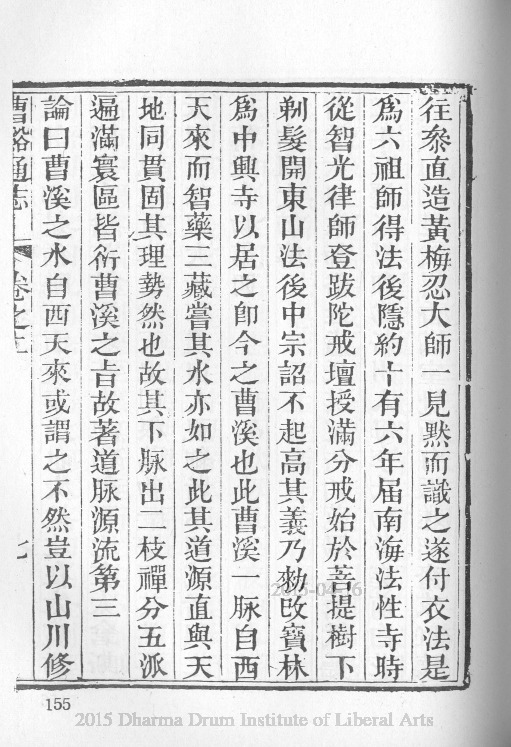 往叅直造黃梅忍大師一見默而識之遂付衣法是
爲六祖師得法後隱約十有六年届南海法性寺時
從智光律師登跋陀戒壇授滿分戒始於菩提樹下
剃髮開東山法後中宗詔不起高其義乃勑改寶林
爲中興寺以居之卽今之曹溪也此曹溪一脉自西
天來而智藥三藏嘗其水亦如之此其道源直與天
地同貫固其理勢然也故其下脉出二枝禪分五派
遍滿寰區皆衍曹溪之旨故著道脉源流第三
論曰曹溪之水自西天來或謂之不然豈以山川修
曹谿通志 卷之三 七
155
2015 Dharma Drum Institute of Liberal Arts